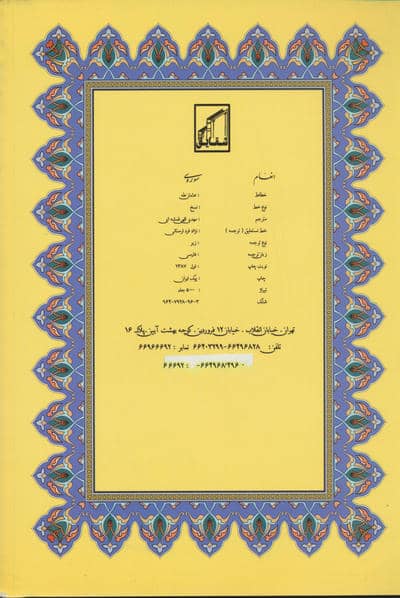 شقایق
انعام
سوره‌ی
خطاط : عثمان طه
نوع خط : نسخ
مترجم : مهدی الهی قمشه ای
خط نستعلیق ( ترجمه )
نوع ترجمه : زیر
زبان ترجمه : فارسی
نوبت چاپ : اول ۱۳۸۶
چاپ
تیراژ : ۵۰۰۰ جلد
شابک : ۹۶۴-۷۹۲۸-۹۶-۳
تهران- خیابان انقلاب - خیابان ۱۲ فروردین کوچه بهشت آیین پلاک ۱۶
تلفن: ۶۶۴۰۳۲۹۹-۶۶۴۹۶۸۲۸ نمابر: ۶۶۹۶۶۶۹۲